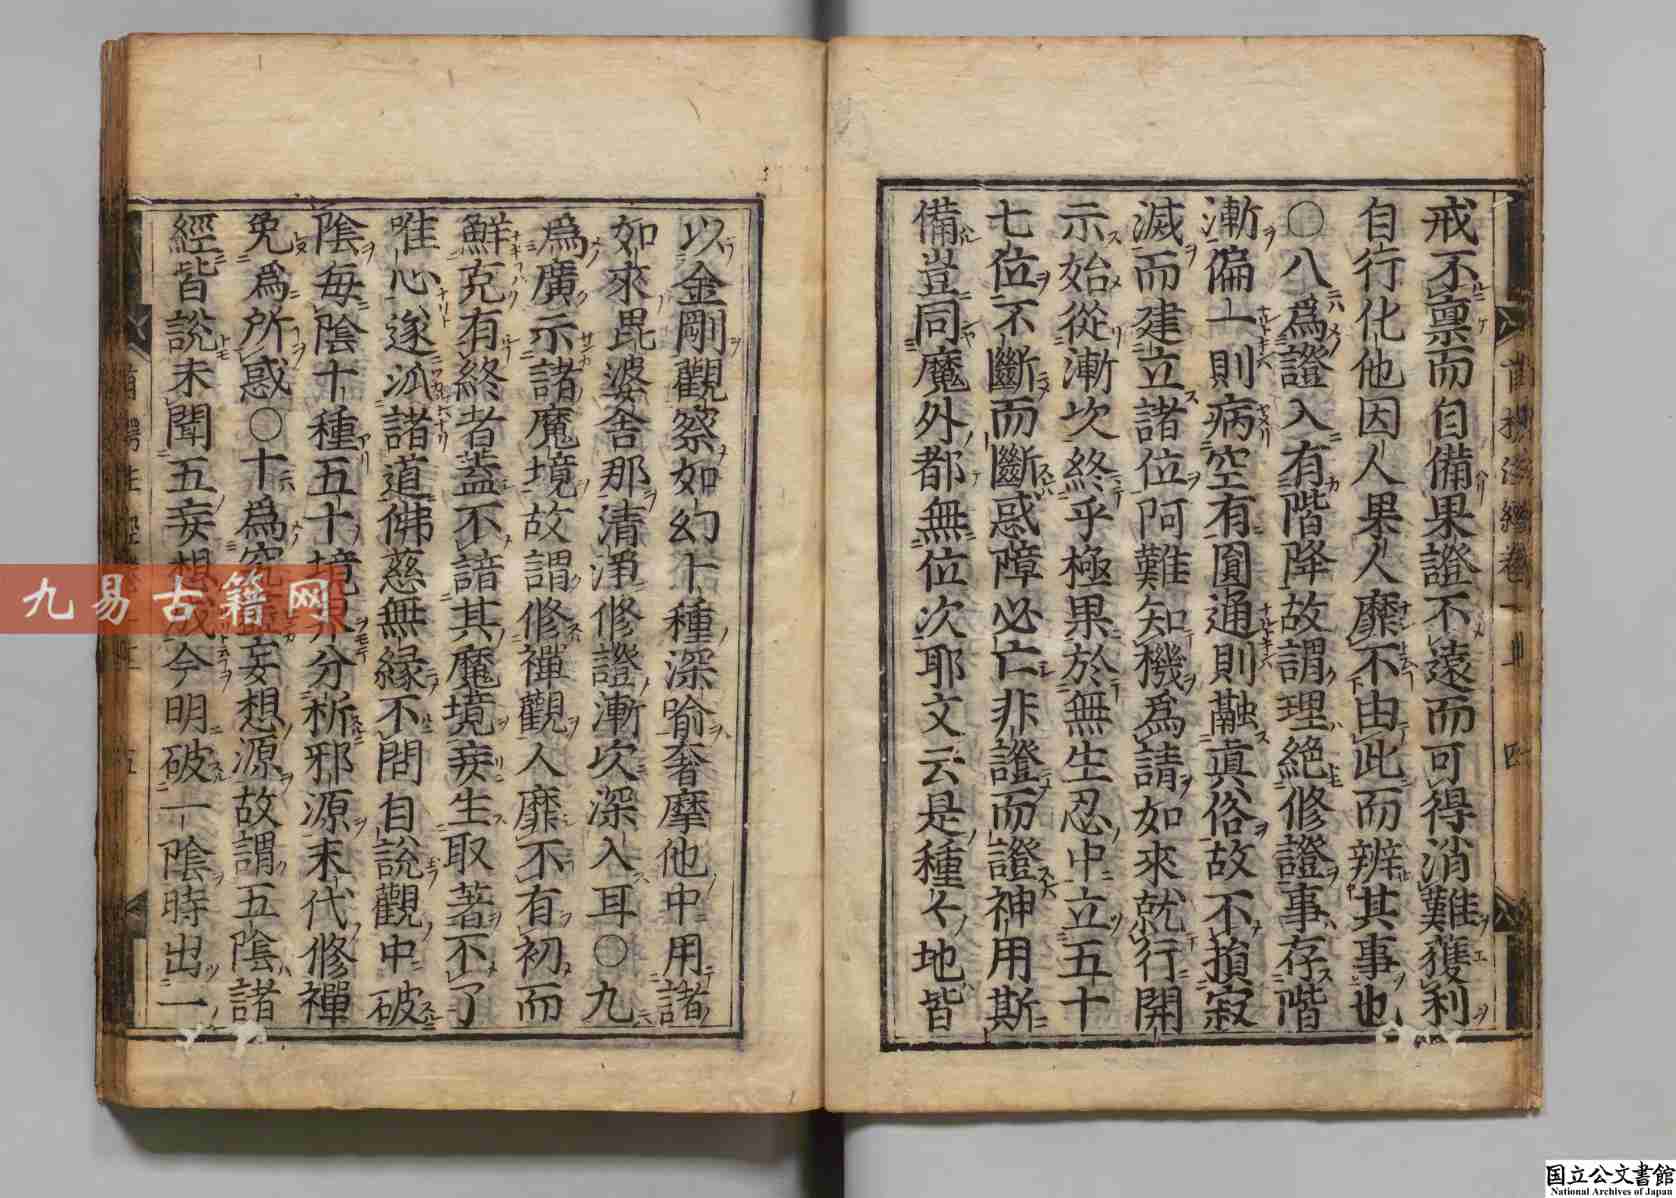 戒不禀而自備果證不遠而可得消難獲利
自行化他因人果人靡不由此而辨其事也
○八爲證入有階降故謂理絶修證事存階
漸偏一則病空有圓通則融眞俗故不損寂
滅而建立諸位阿難知機爲請如來就行開
示始從漸次終乎極果於無生忍中立五十
七位不斷而斷惑障必亡非證而證神用斯
備豈同魔外都無位次耶文云是種〻地皆
以金剛觀察如幻十種深喻奢摩他中用諸
如來毘婆舍那清淨修證漸次深入耳○九
爲廣示諸魔境故謂修禪觀人靡不有初而
鮮克有終者蓋不諳其魔境妄生取著不了
唯心遂泒諸道佛慈無緣不問自說觀中破
陰每陰十種五十境界分析邪源末代修禪
免爲所惑○十爲究妄想源故謂五陰諸
經皆說未聞五妄想成今明破一陰時出一
九易古籍网
国立公文書館
National Archives of Japan